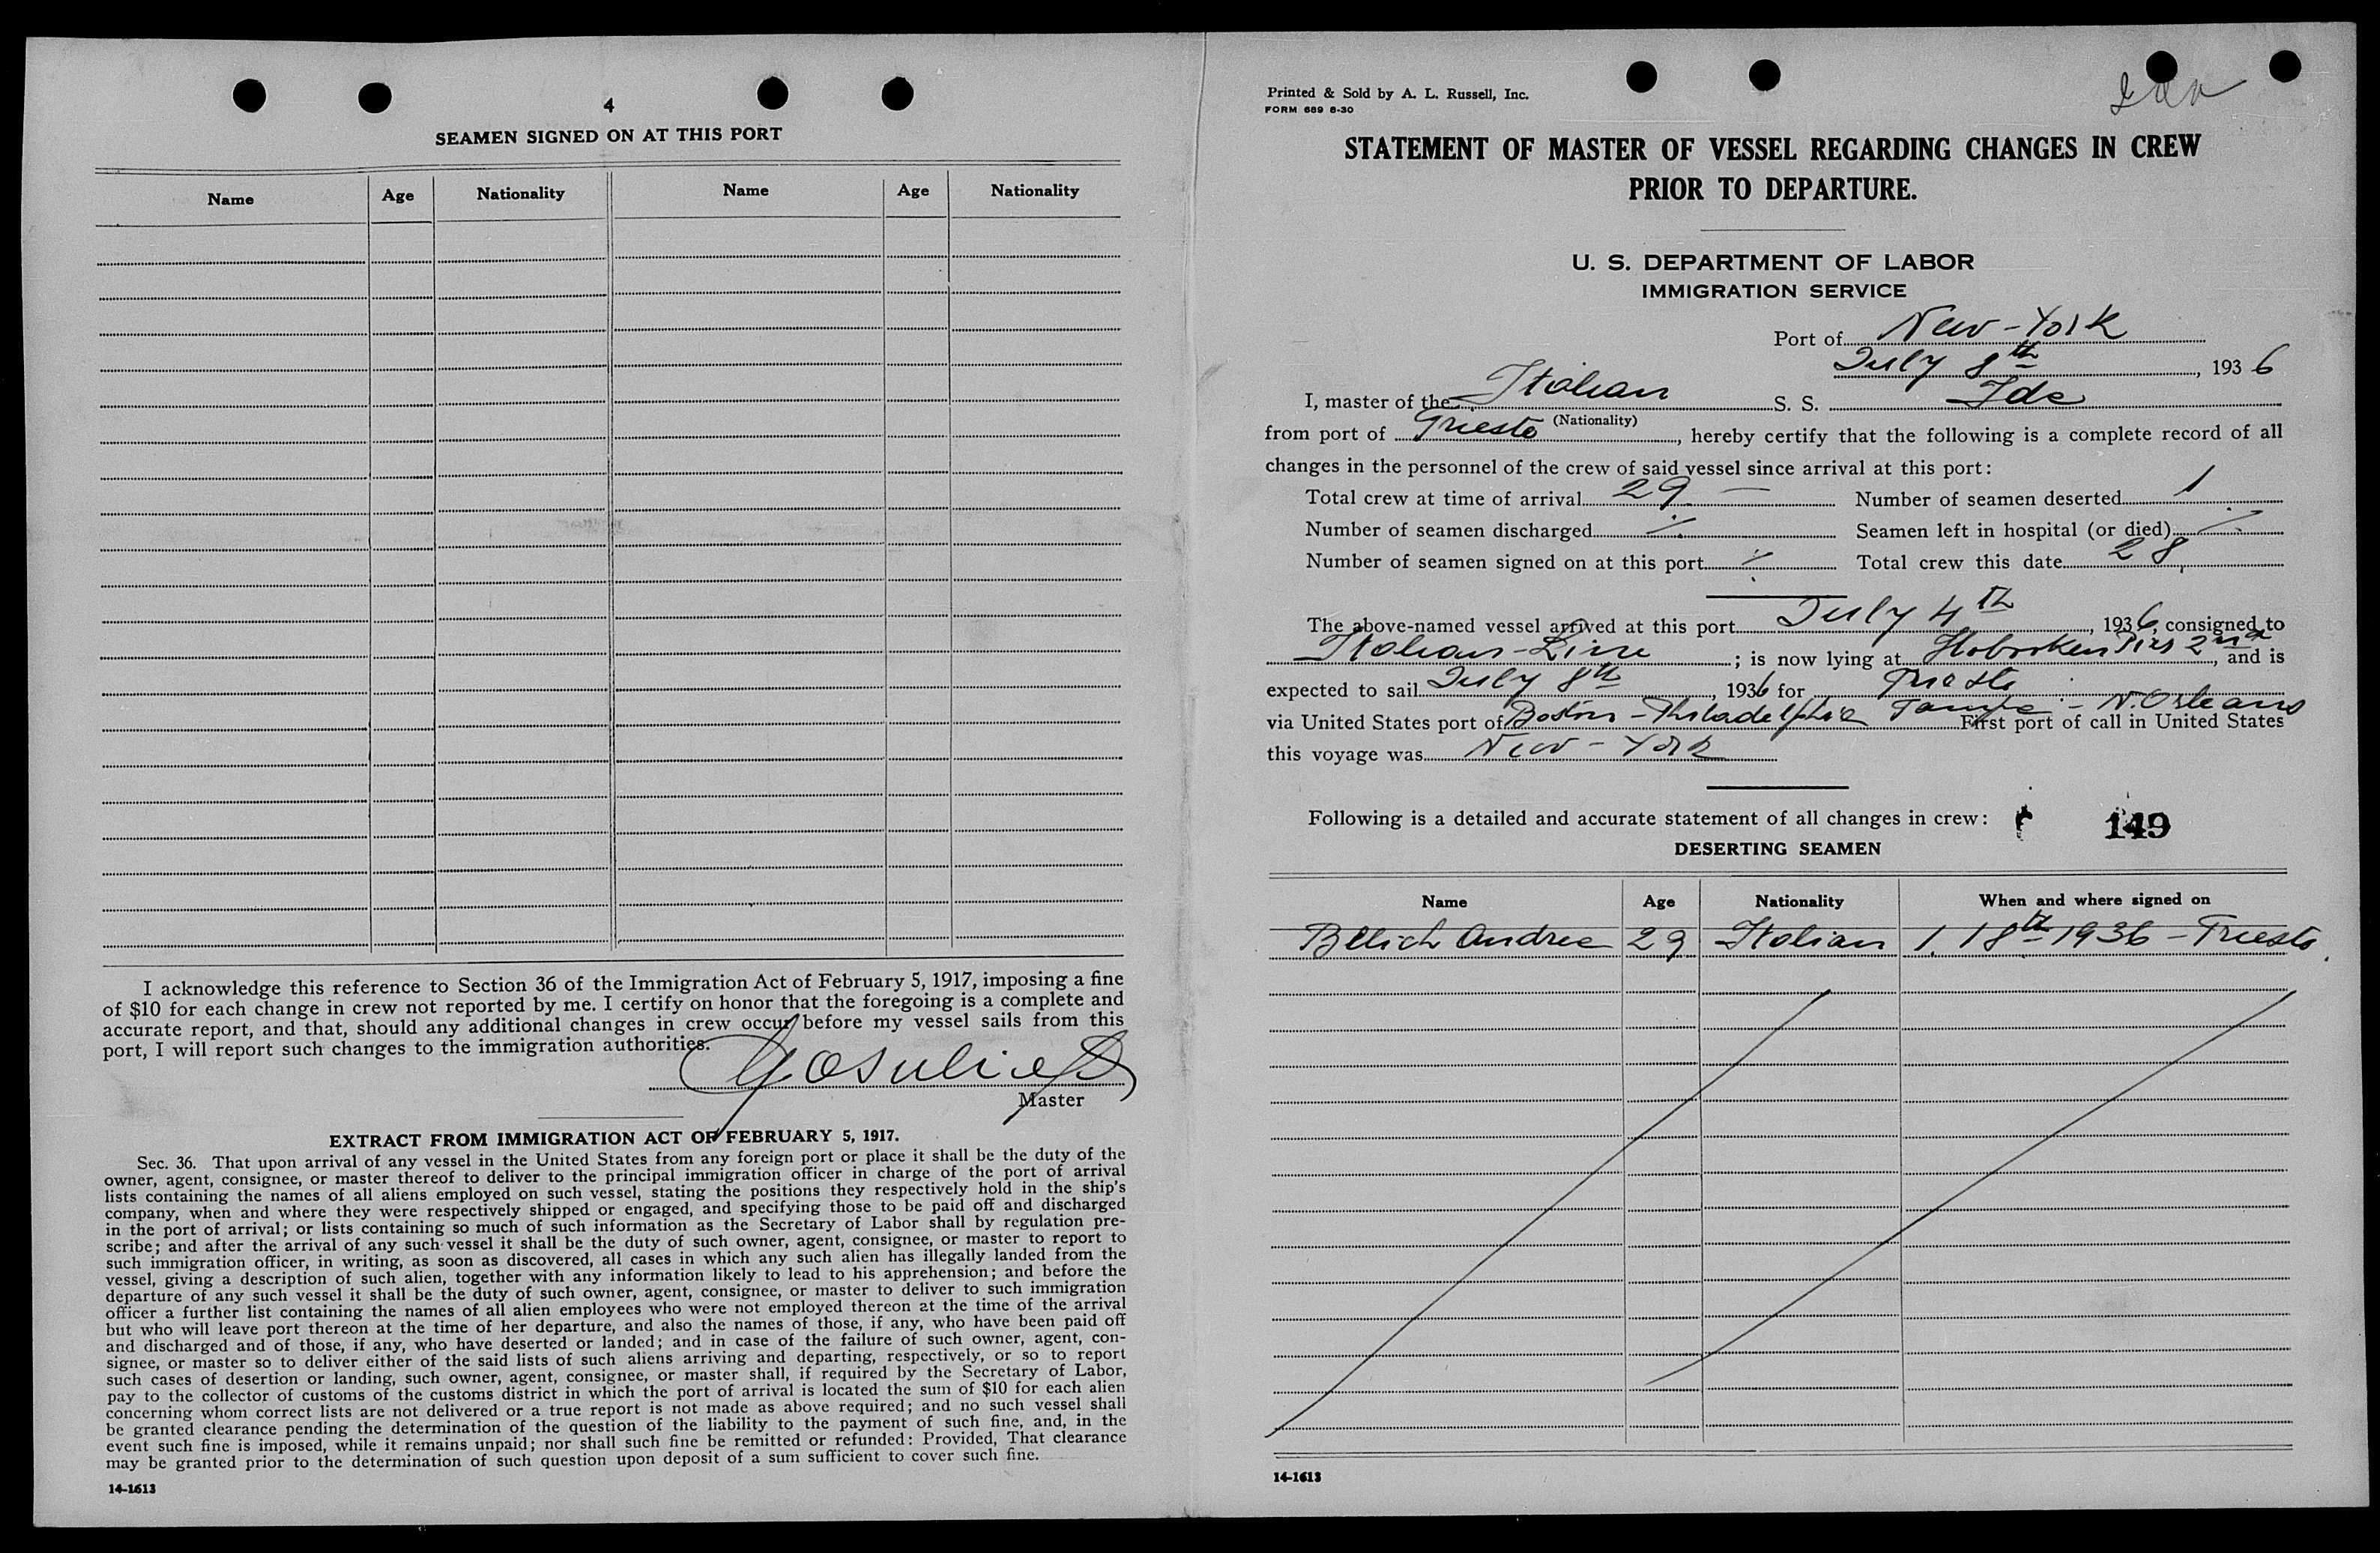 4
SEAMEN SIGNED ON AT THIS PORT
Name Age Nationality Name Age Nationality
I acknowledge this reference to Section 36 of the Immigration Act of February 5, 1917, imposing a fine
of $10 for each change in crew not reported by me. I certify on honor that the foregoing is a complete and
accurate report, and that, should any additional changes in crew occur before my vessel sails from this
port, I will report such changes to the immigration authorities.
Master
EXTRACT FROM IMMIGRATION ACT OF FEBRUARY 5, 1917.
Sec. 36. That upon arrival of any vessel in the United States from any foreign port or place it shall be the duty of the
owner, agent, consignee, or master thereof to deliver to the principal immigration officer in charge of the port of arrival
lists containing the names of all aliens employed on such vessel, stating the positions they respectively hold in the ship's
company, when and where they were respectively shipped or engaged, and specifying those to be paid off and discharged
in the port of arrival; or lists containing so much of such information as the Secretary of Labor shall by regulation pre-
scribe; and after the arrival of any such vessel it shall be the duty of such owner, agent, consignee, or master to report to
such immigration officer, in writing, as soon as discovered, all cases in which any such alien has illegally landed from the
vessel, giving a description of such alien, together with any information likely to lead to his apprehension; and before the
departure of any such vessel it shall be the duty of such owner, agent, consignee, or master to deliver to such immigration
officer a further list containing the names of all alien employees who were not employed thereon at the time of the arrival
but who will leave port thereon at the time of her departure, and also the names of those, if any, who have been paid off
and discharged and of those, if any, who have deserted or landed; and in case of the failure of such owner, agent, con-
signee, or master so to deliver either of the said lists of such aliens arriving and departing, respectively, or so to report
such cases of desertion or landing, such owner, agent, consignee, or master shall, if required by the Secretary of Labor,
pay to the collector of customs of the customs district in which the port of arrival is located the sum of $10 for each alien
concerning whom correct lists are not delivered or a true report is not made as above required; and no such vessel shall
be granted clearance pending the determination of the question of the liability to the payment of such fine, and, in the
event such fine is imposed, while it remains unpaid; nor shall such fine be remitted or refunded: Provided, That clearance
may be granted prior to the determination of such question upon deposit of a sum sufficient to cover such fine.
14-1613
Printed & Sold by A. L. Russell, Inc.
FORM 689 6-30
STATEMENT OF MASTER OF VESSEL REGARDING CHANGES IN CREW
PRIOR TO DEPARTURE.
U. S. DEPARTMENT OF LABOR
IMMIGRATION SERVICE
Port of New-York
July 8th, 1936
I, master of the Italian S. S. Ida
(Nationality)
from port of Trieste, hereby certify that the following is a complete record of all
changes in the personnel of the crew of said vessel since arrival at this port:
Total crew at time of arrival 29 — Number of seamen deserted 1
Number of seamen discharged ⁒ Seamen left in hospital (or died) ⁒
Number of seamen signed on at this port ⁒ Total crew this date 28
The above-named vessel arrived at this port July 4th, 1936, consigned to
Italian-Line; is now lying at Hoboken Pier 2nd, and is
expected to sail July 8th, 1936 for Trieste
via United States port of Boston - Philadelphia Tampa - N. Orleans First port of call in United States
this voyage was New-York
Following is a detailed and accurate statement of all changes in crew: 149
DESERTING SEAMEN
Name Age Nationality When and where signed on
Bellich Andrea 29 Italian 1. 18th 1936 - Trieste
14-1613